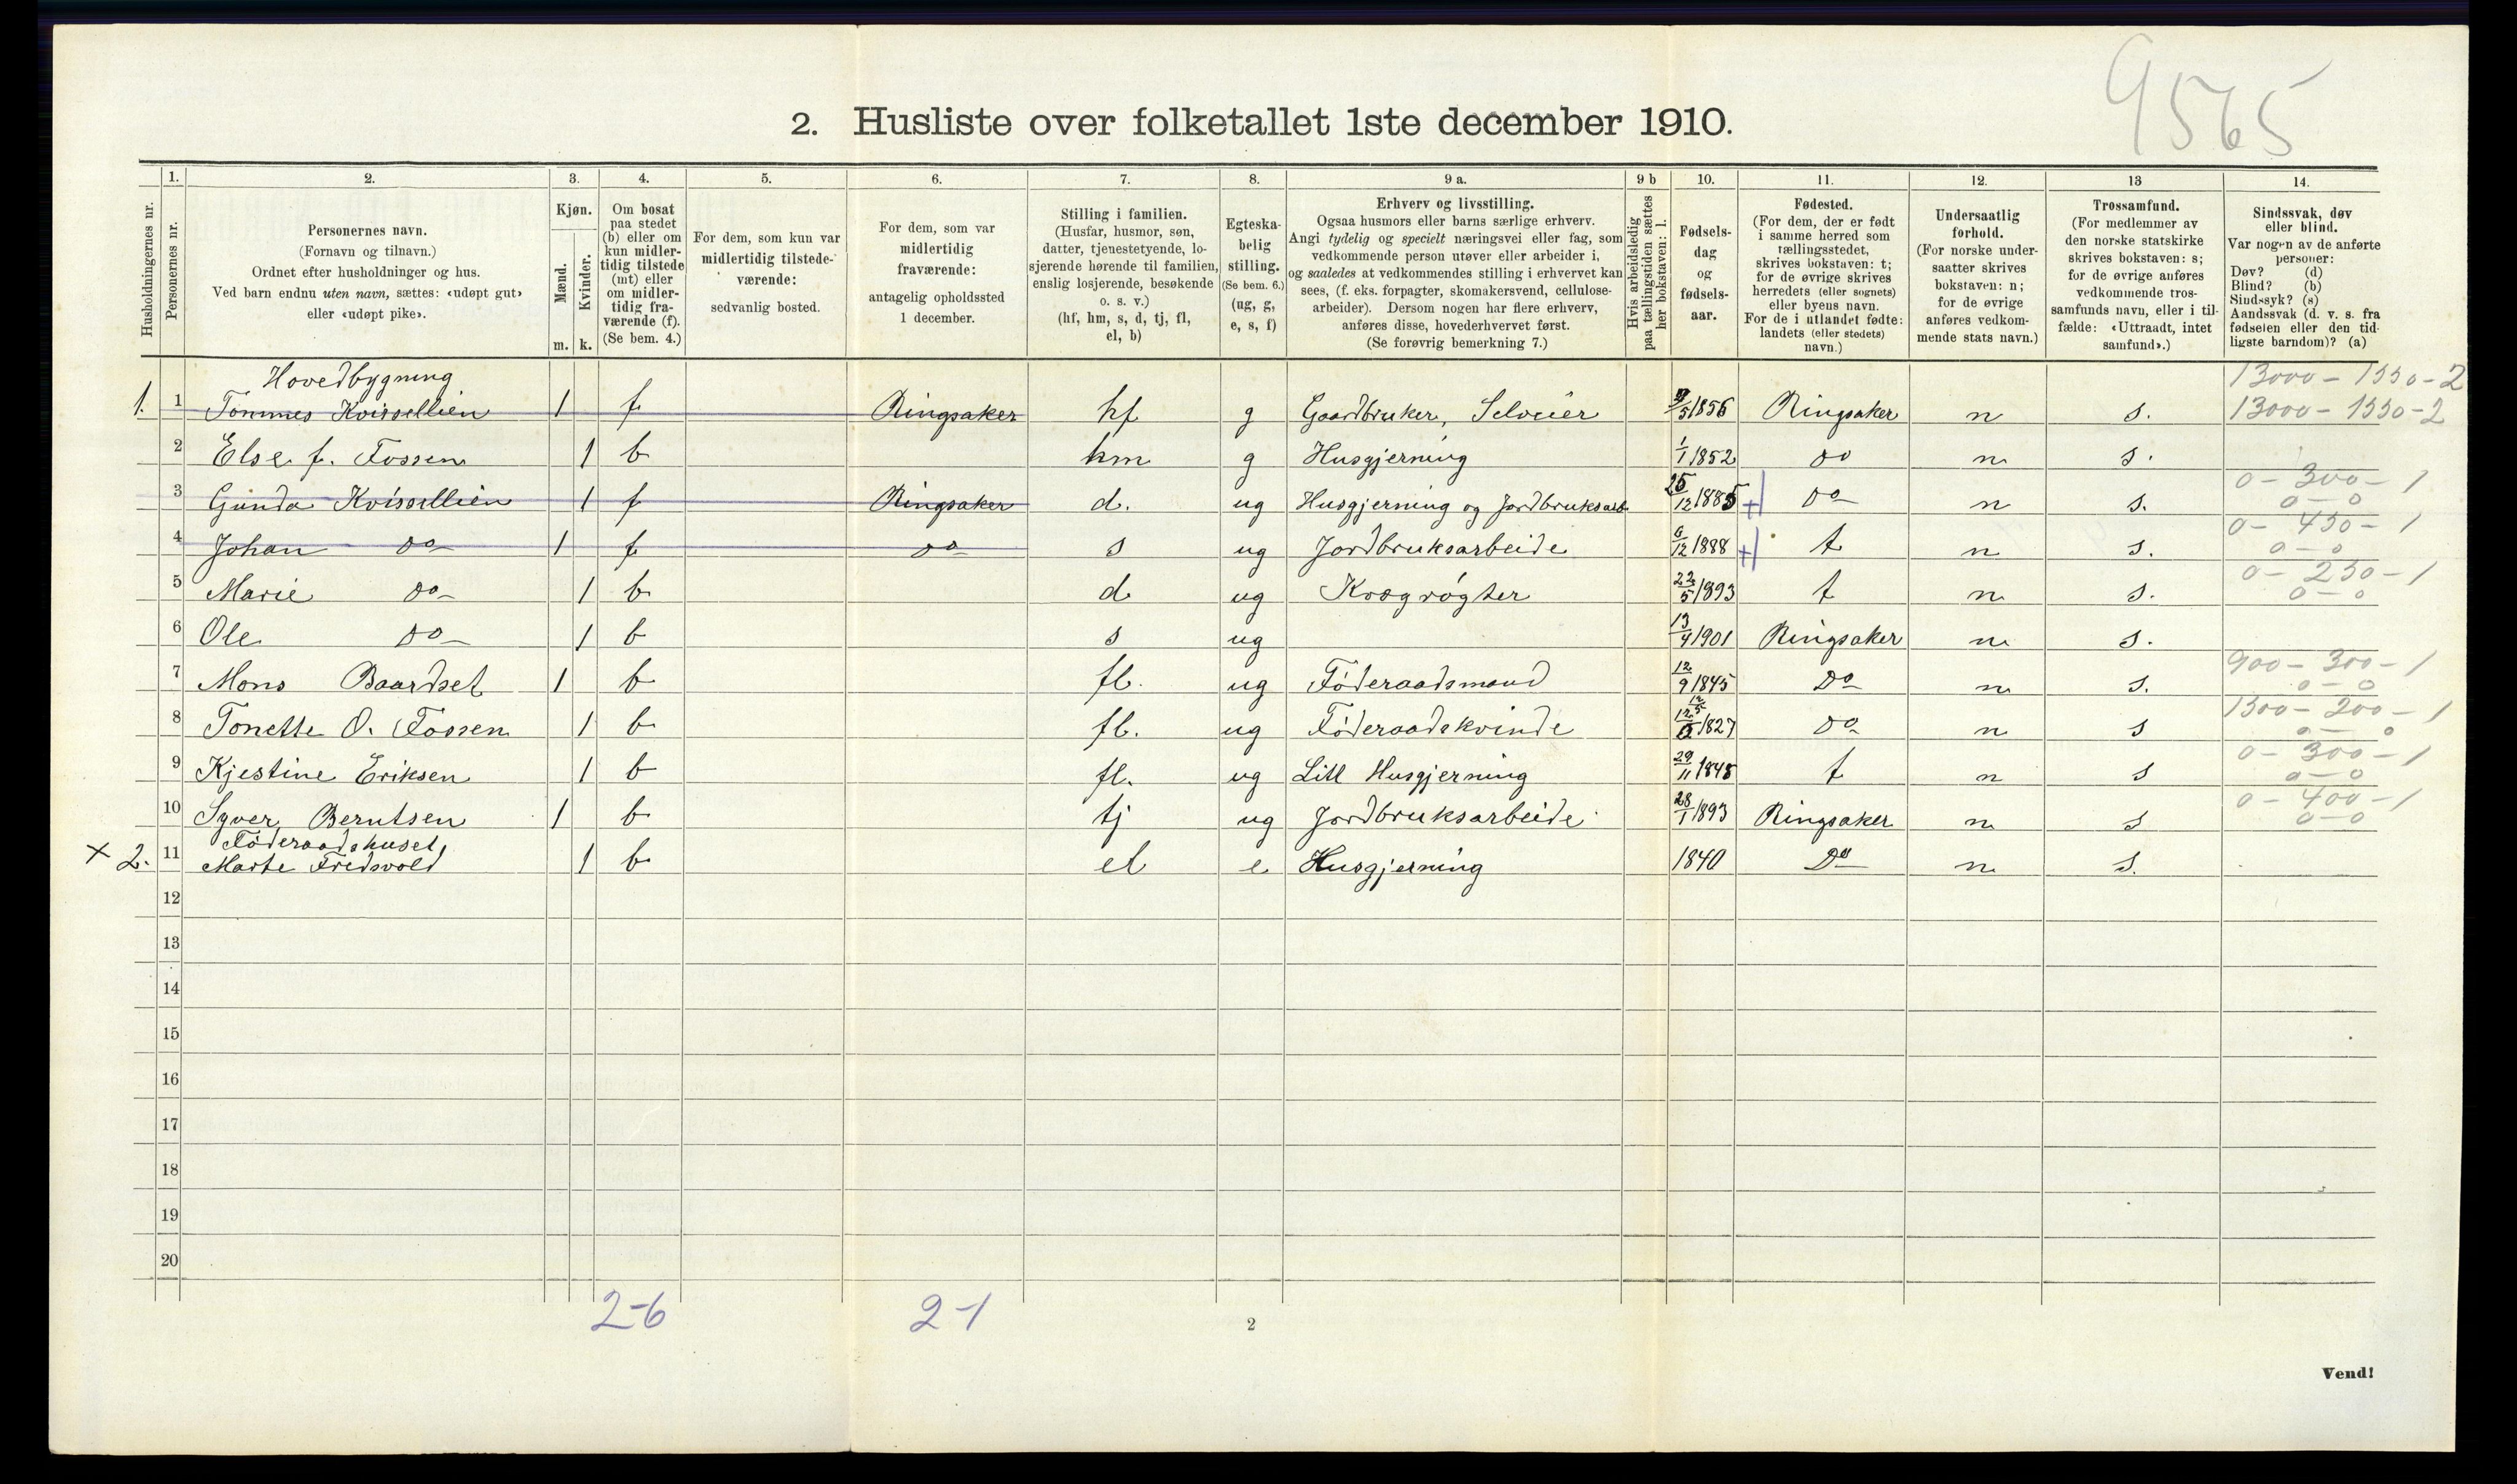 9565
2. Husliste over folketallet 1ste december 1910.
Husholdningernes nr.
1.
Personernes nr.
2.
Personernes navn.
(Fornavn og tilnavn.)
Ordnet efter husholdninger og hus.
Ved barn endnu uten navn, sættes: «udøpt gut»
eller «udøpt pike».
3.
Kjøn.
Mænd.
Kvinder.
m. k.
4.
Om bosat
paa stedet
(b) eller om
kun midler-
tidig tilstede
(mt) eller
om midler-
tidig fra-
værende (f).
(Se bem. 4.)
5.
For dem, som kun var
midlertidig tilstede-
værende:
sedvanlig bosted.
6.
For dem, som var
midlertidig
fraværende:
antagelig opholdssted
1 december.
7.
Stilling i familien.
(Husfar, husmor, søn,
datter, tjenestetyende, lo-
sjerende hørende til familien,
enslig losjerende, besøkende
o. s. v.)
(hf, hm, s, d, tj, fl,
el, b)
8.
Egteska-
belig
stilling.
(Se bem. 6.)
(ug, g,
e, s, f)
9 a.
Erhverv og livsstilling.
Ogsaa husmors eller barns særlige erhverv.
Angi tydelig og specielt næringsvei eller fag, som
vedkommende person utøver eller arbeider i,
og saaledes at vedkommendes stilling i erhvervet kan
sees, (f. eks. forpagter, skomakersvend, cellulose-
arbeider). Dersom nogen har flere erhverv,
anføres disse, hovederhvervet først.
(Se forøvrig bemerkning 7.)
9 b
Hvis arbeidsledig
paa tællingstiden sættes
her bokstaven: l.
10.
Fødsels-
dag
og
fødsels-
aar.
11.
Fødested.
(For dem, der er født
i samme herred som
tællingsstedet,
skrives bokstaven: t;
for de øvrige skrives
herredets (eller sognets)
eller byens navn.
For de i utlandet fødte:
landets (eller stedets)
navn.)
12.
Undersaatlig
forhold.
(For norske under-
saatter skrives
bokstaven: n;
for de øvrige
anføres vedkom-
mende stats navn.)
13
Trossamfund.
(For medlemmer av
den norske statskirke
skrives bokstaven: s;
for de øvrige anføres
vedkommende tros-
samfunds navn, eller i til-
fælde: «Uttraadt, intet
samfund».)
14.
Sindssvak, døv
eller blind.
Var nogen av de anførte
personer:
Døv? (d)
Blind? (b)
Sindssyk? (s)
Aandssvak (d. v. s. fra
fødselen eller den tid-
ligste barndom)? (a)
Hovedbygning 13000 - 1550 - 2
1. 1 Tommes Kvissellien 1 f Ringsaker hf g Gaardbruker, Selveier 9/5 1856 Ringsaker n s. 13000 - 1550 - 2
2 Else f. Fossen 1 b hm g Husgjerning 1/1 1852 do n s.
0 - 300 - 1
3 Gunda Kvissellien 1 f Ringsaker d. ug Husgjerning og Jordbruksarb. 25/12 1885 + do n s. 0 - 0
0 - 450 - 1
4 Johan do 1 f do s ug Jordbruksarbeide 6/12 1888 + t n s. 0 - 0
0 - 250 - 1
5 Marie do 1 b d ug Kregrøgter 22/5 1893 t n s. 0 - 0
6 Ole do 1 b s ug 13/4 1901 Ringsaker n s.
900 - 300 - 1
7 Mons Baardset 1 b fl. ug Føderaadsmand 12/9 1845 Do n s. 0 - 0
1300 - 200 - 1
8 Tonette O. Fossen 1 b fl. ug Føderaadskvinde 12/5 1827 do n s 0 - 0
0 - 300 - 1
9 Kjestine Eriksen 1 b fl. ug Litt Husgjerning 29/11 1848 t n s 0 - 0
0 - 400 - 1
10 Syver Berntsen 1 b tj ug Jordbruksarbeide 28/1 1893 Ringsaker n s 0 - 0
Føderaadshuset
× 2. 11 Marte Fredsvold 1 b el e Husgjerning 1840 Do n s.
12
13
14
15
16
17
18
19
20
2-6 2-1
2
Vend!